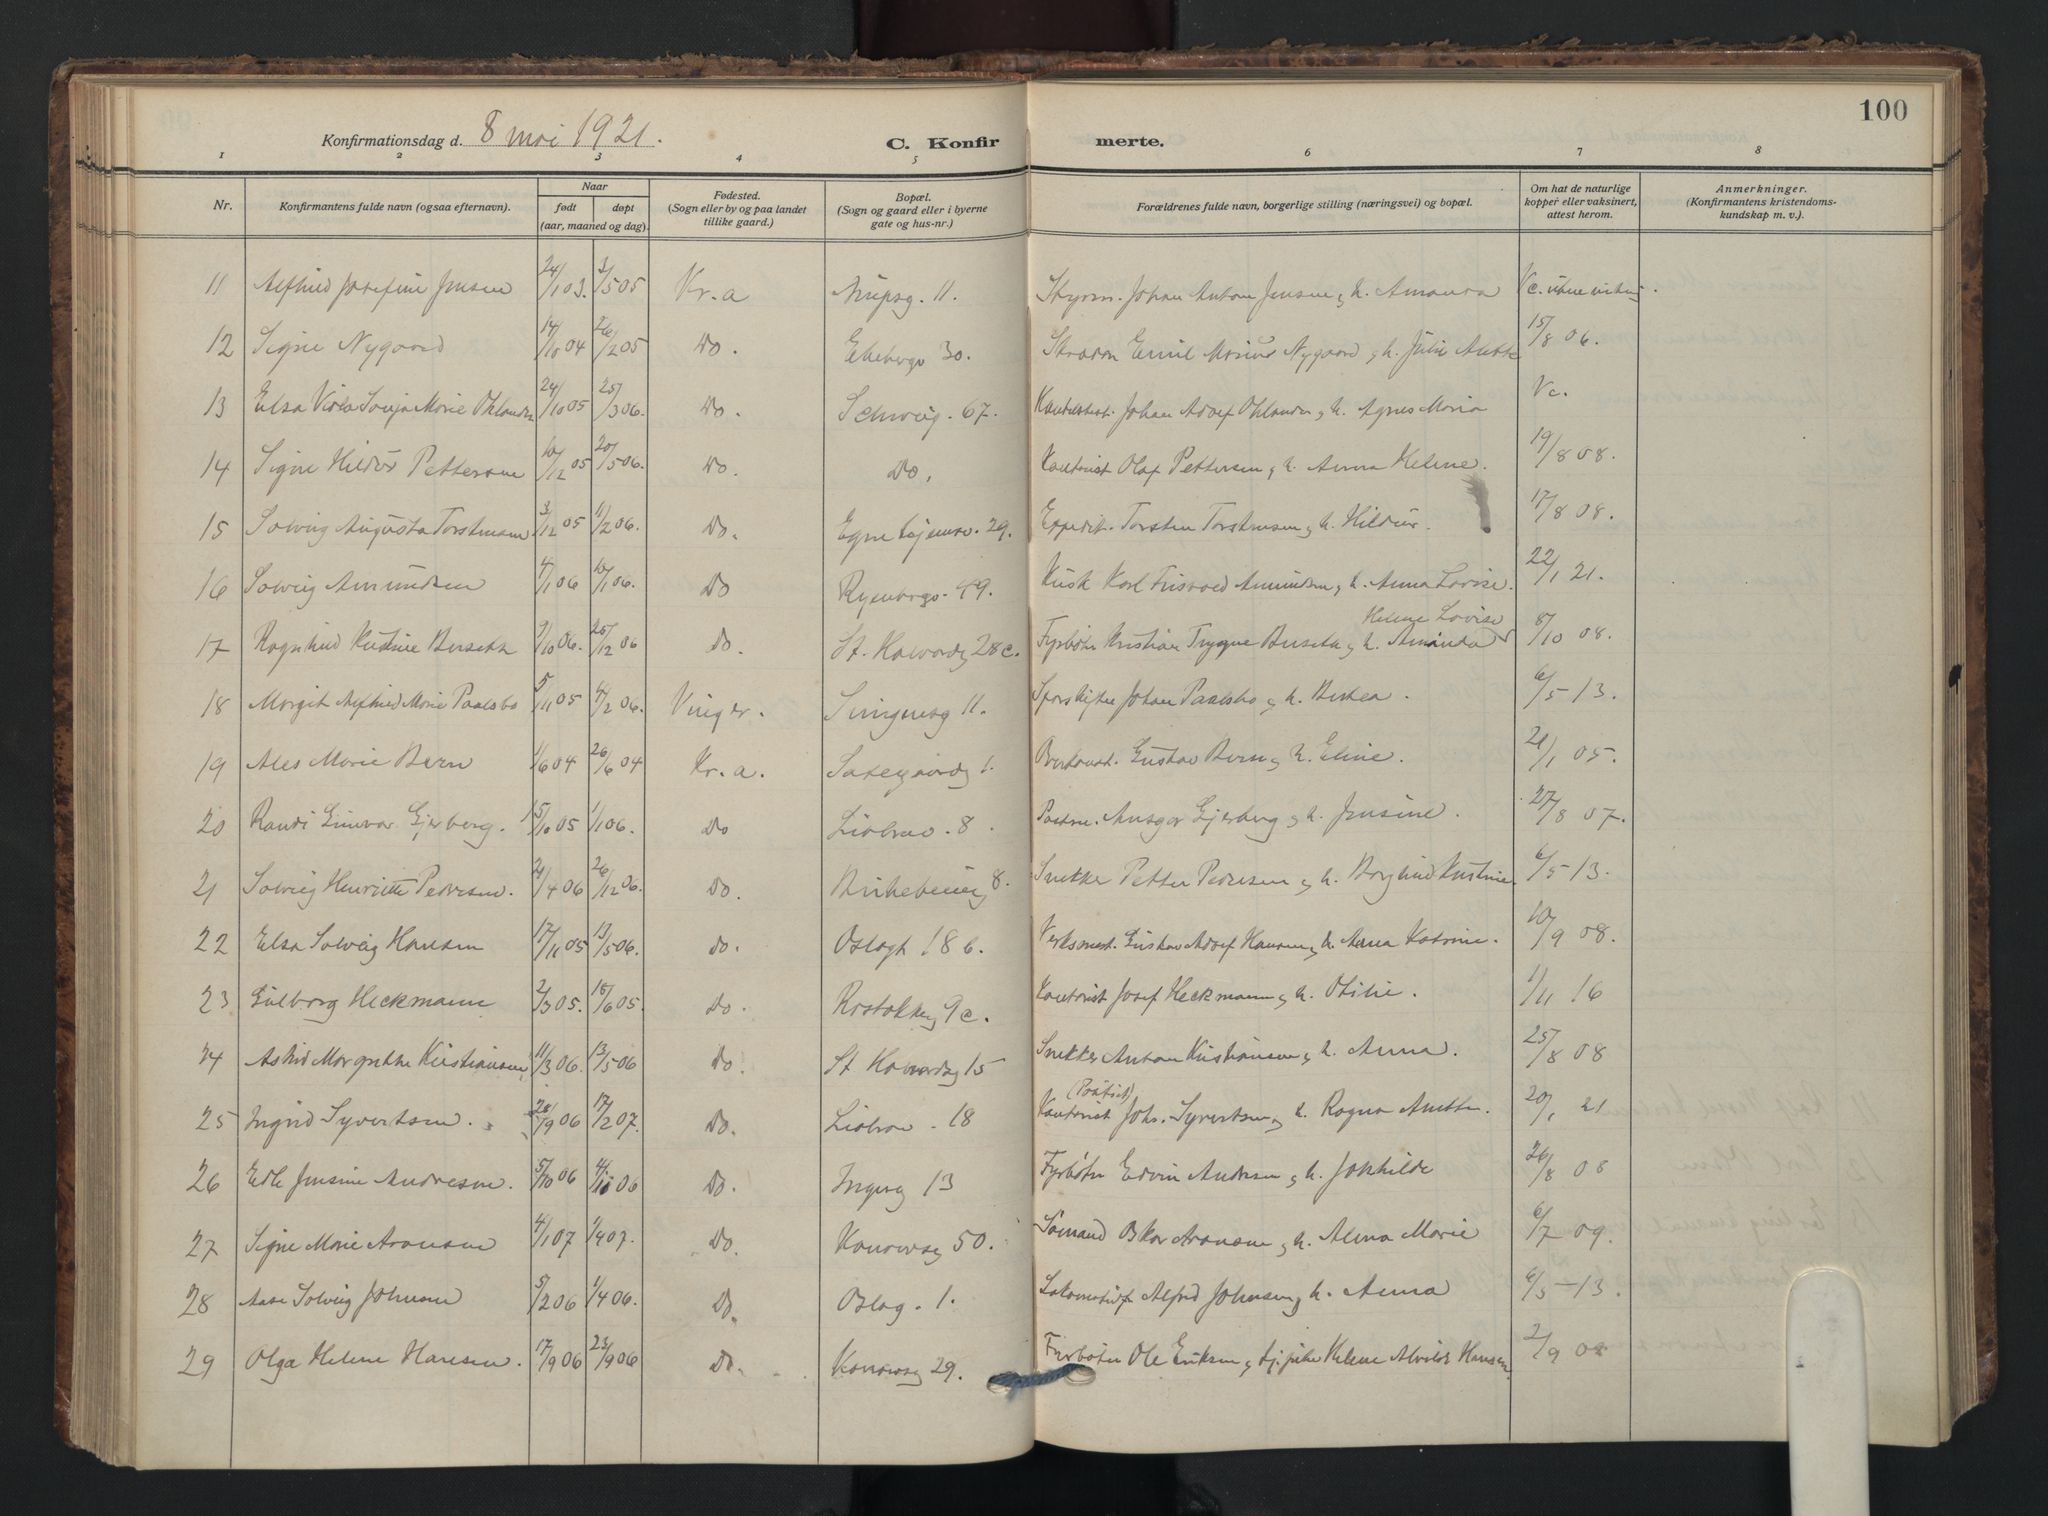 100
Konfirmationsdag d. 8 mai 1921.
C. Konfirmerte.
1 2 3 4 5 6 7 8
Nr.
Konfirmantens fulde navn (ogsaa efternavn).
Naar
født døpt
(aar, maaned og dag).
Fødested.
(Sogn eller by og paa landet
tillike gaard.)
Bopæl.
(Sogn og gaard eller i byerne
gate og hus-nr.)
Forældrenes fulde navn, borgerlige stilling (næringsvei) og bopæl.
Om hat de naturlige
kopper eller vaksinert,
attest herom.
Anmerkninger.
(Konfirmantens kristendoms-
kundskap m. v.)
11 Alfhild Josefine Jensen 24/1 03. 3/5 05 Kr.a 11. Styrm. Johan Anton Jensen & h. Amanda Vc.
12 Signe Nygaard 14/10 04 26/2 05 Do. Ekebergv 30. Emil Marius Nygaard & h. Julie 15/8 06.
13 Elsa Viola Sonja Marie Ohlander 24/10 05 25/3 06. Do. Schweig. 67. Johan Adolf Ohlander & h. Agnes Maria Vc.
14 Signe Hildur Pettersen 10/12 05 20/5 06. Do. Do. Kontorist Olaf Pettersen & h. Anna Helene. 19/8 08.
15 Solveig Augusta Torstensen 3/12 05 11/2 06. Do. Egne hjemsv. 29. Expedit. Torsten Torstensen & h. Hildur. 17/8 08.
16 Solveig Amundsen 4/1 06 10/1 06. Do Ryenbergv. 49. Kusk Karl Amundsen & h. Anna Lovise. 22/1 21.
Helene Lovise
17 Ragnhild Kristine 9/10 06. 25/12 06 Do. St. Halvardsg 28c. Fyrbøter Kristian Trygve & h. Amanda 8/10 08.
18 Margit Alfhild Marie Paalsbo 5/11 05 4/2 06. Vinger. 11. Johan Paalsbo & h. 6/5-13.
19 Marie Bern 1/6 04 26/6 04 Kr.a. 1. Gustav Bern & h. Eline. 21/1 05.
20 Randi Gjerberg. 15/10 05 1/1 06. Do Ljabrv. 8. Ansgar Gjerberg & h. Jensine. 27/8 07.
21 Solveig Henriette Pedersen. 21/4 06 26/12 06. Do. Birkebeinerg 8. Snekker Petter Pedersen & h. Borghild Kristine. 6/5-13.
22 Elsa Solveig Hansen 17/11 05 13/5 06. Do. Oslogt 18 b. Verksmest. Gustav Adolf Hansen & h. Anna Katrine. 10/9 08.
23 Gulborg Heckmann 2/3 05. 18/6 05. Do. Rostokkg 9c. Kontorist Josef Heckmann & h. Otilie. 1/11 16
24 Astrid Margrethe Kristiansen 11/3 06. 13/5 06 Do. St Halvardsg 15 Snekker Anton Kristiansen & h. Anna. 25/8 08
25 Ingrid Syvertsen. 28/9 06 17/2 07. Do. Ljabrv. 18 Kontorist Johs. Syvertsen & h. Ragna Anette. 20/1 21
26 Edle Jensine Andresen. 5/10 06 06 Do. Ingeg 13 Fyrbøter Edvin Andresen & h. 26/8 08
27 Signe Marie Aronsen 4/1 07 1/4 07. Do. Konowsg 50. Sømand Oskar Aronsen & h. Alma Marie 6/7 09.
28 Aase Solveig Johnsen 5/2 06 1/4 06. Do. Oslog. 1. Lokomotivf Alfred Johnsen & h. Anna 6/5-13.
29 Olga Helene Hansen. 17/9 06 23/9 06 Do. Konowsg 29. Fyrbøter Ole Eriksen & pike Helene Alvilde Hansen 2/9 08